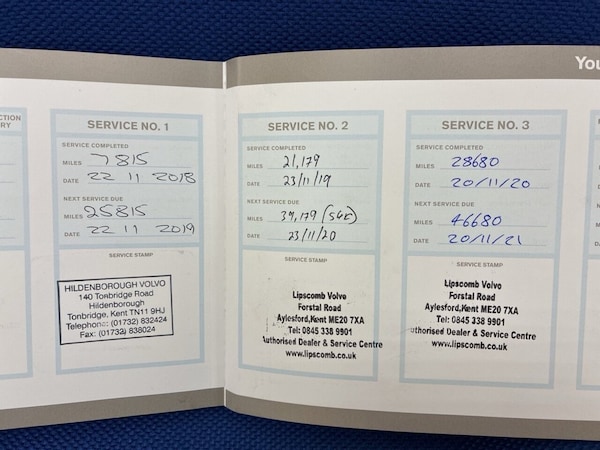 You
CTION
RY
SERVICE NO. 1
SERVICE COMPLETED
MILES 7815
DATE 22 11 2018
NEXT SERVICE DUE
MILES 25815
DATE 22 11 2019
SERVICE STAMP
HILDENBOROUGH VOLVO
140 Tonbridge Road
Hildenborough
Tonbridge, Kent TN11 9HJ
Telephone: (01732) 832424
Fax: (01732) 838024
SERVICE NO. 2
SERVICE COMPLETED
MILES 21,179
DATE 23/11/19
NEXT SERVICE DUE
MILES 39,179
DATE 23/11/20
SERVICE STAMP
Lipscomb Volvo
Forstal Road
Aylesford,Kent ME20 7XA
Tel: 0845 338 9901
uthorised Dealer & Service Centre
www.lipscomb.co.uk
SERVICE NO. 3
SERVICE COMPLETED
MILES 28680
DATE 20/11/20
NEXT SERVICE DUE
MILES 46680
DATE 20/11/21
SERVICE STAMP
Lipscomb Volvo
Forstal Road
Aylesford,Kent ME20 7XA
Tel: 0845 338 9901
uthorised Dealer & Service Centre
www.lipscomb.co.uk